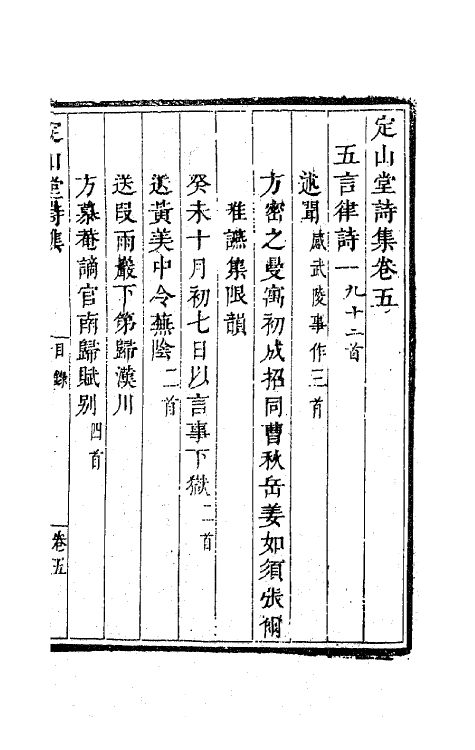 定山堂詩集卷五
五言律詩一九十二首
述聞感武陵事作三首
方密之曼寓初成招同曹秋岳姜如須張爾
唯讌集限韻
癸未十月初七日以言事下獄二首
送黃美中令蕪陰二首
送段雨巖下第歸漢川
方慕菴謫官南歸賦別四首
定山堂詩集 目錄 卷五